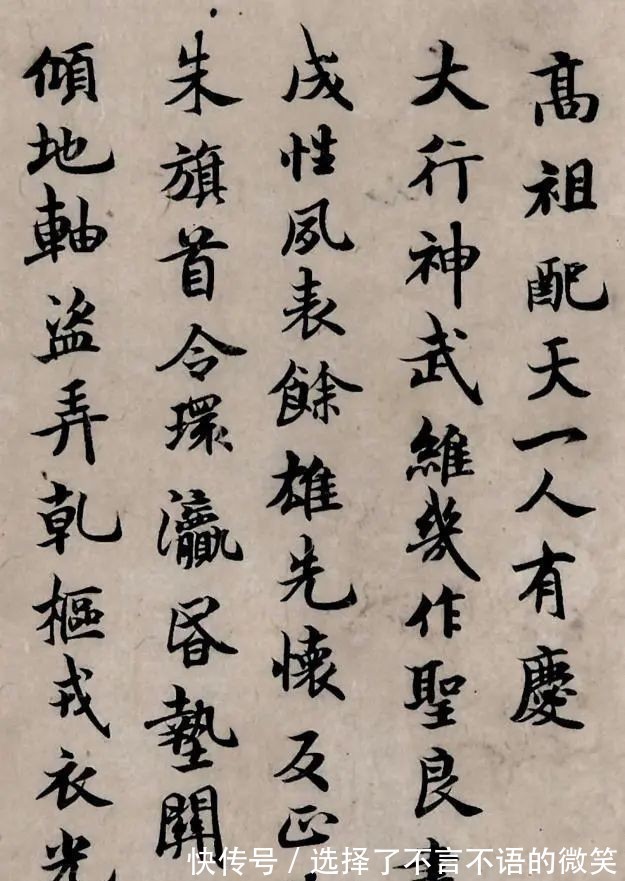 高祖配天一人有慶
大行神武維幾作聖良
成性夙表餘雄先懷反正
朱旗首令環瀛昏墊
傾地軸盜弄乾樞戎衣光
快传号 / 选择了不言不语的微笑